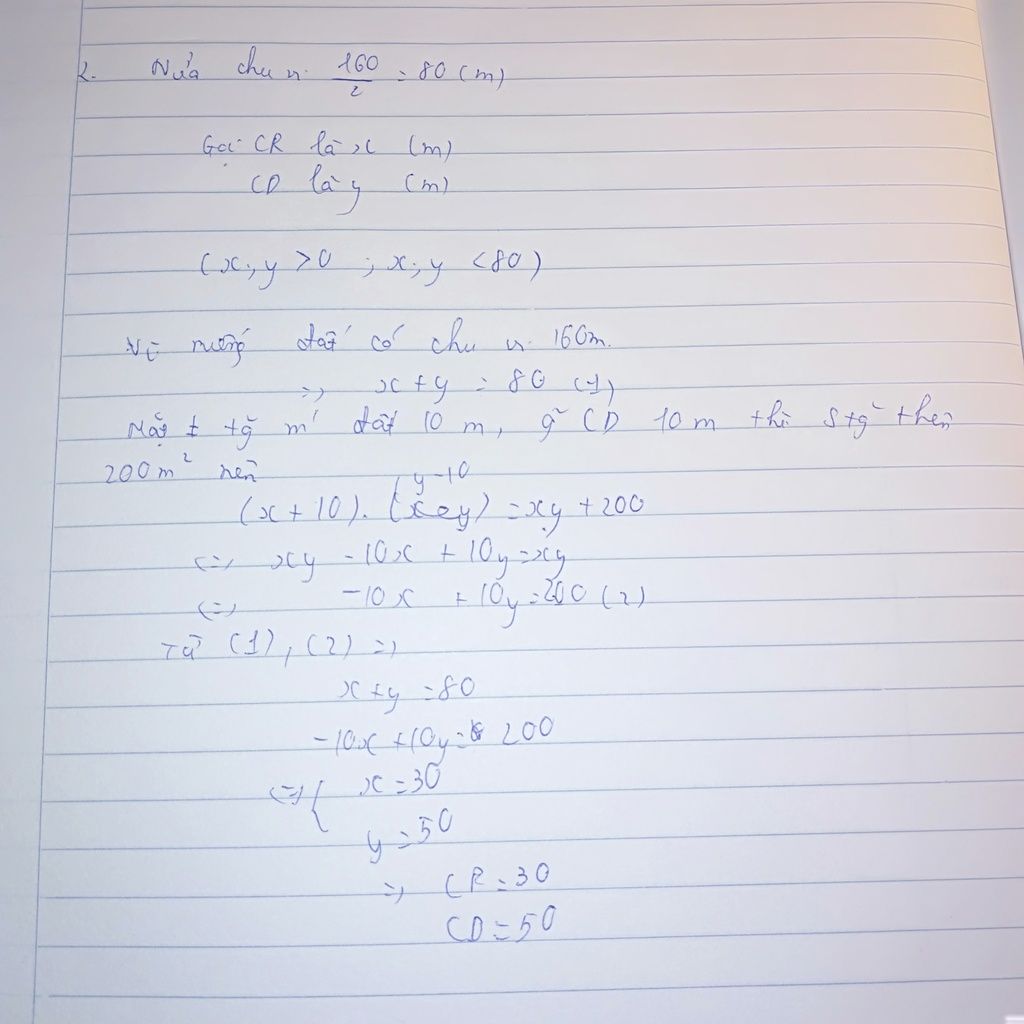 2. Nửa chu vi. 160/2 = 80 (m)
Gọi CR là x (m)
CD là y (m)
(x; y > 0 ; x; y < 80)
Vì ruộng đất có chu vi 160m.
=> x + y = 80 (1)
Mặt ≠ tg m' đất 10 m, g~ CD 10 m thì S tg~ thên
200m² nên
y-10
(x + 10). (x y) = xy + 200
<=> xy - 10x + 10y = xy
<=> -10x + 10y = 200 (2)
Từ (1), (2) =>
x + y = 80
-10x + 10y = 200
<=> { x = 30
y = 50
=> CR = 30
CD = 50